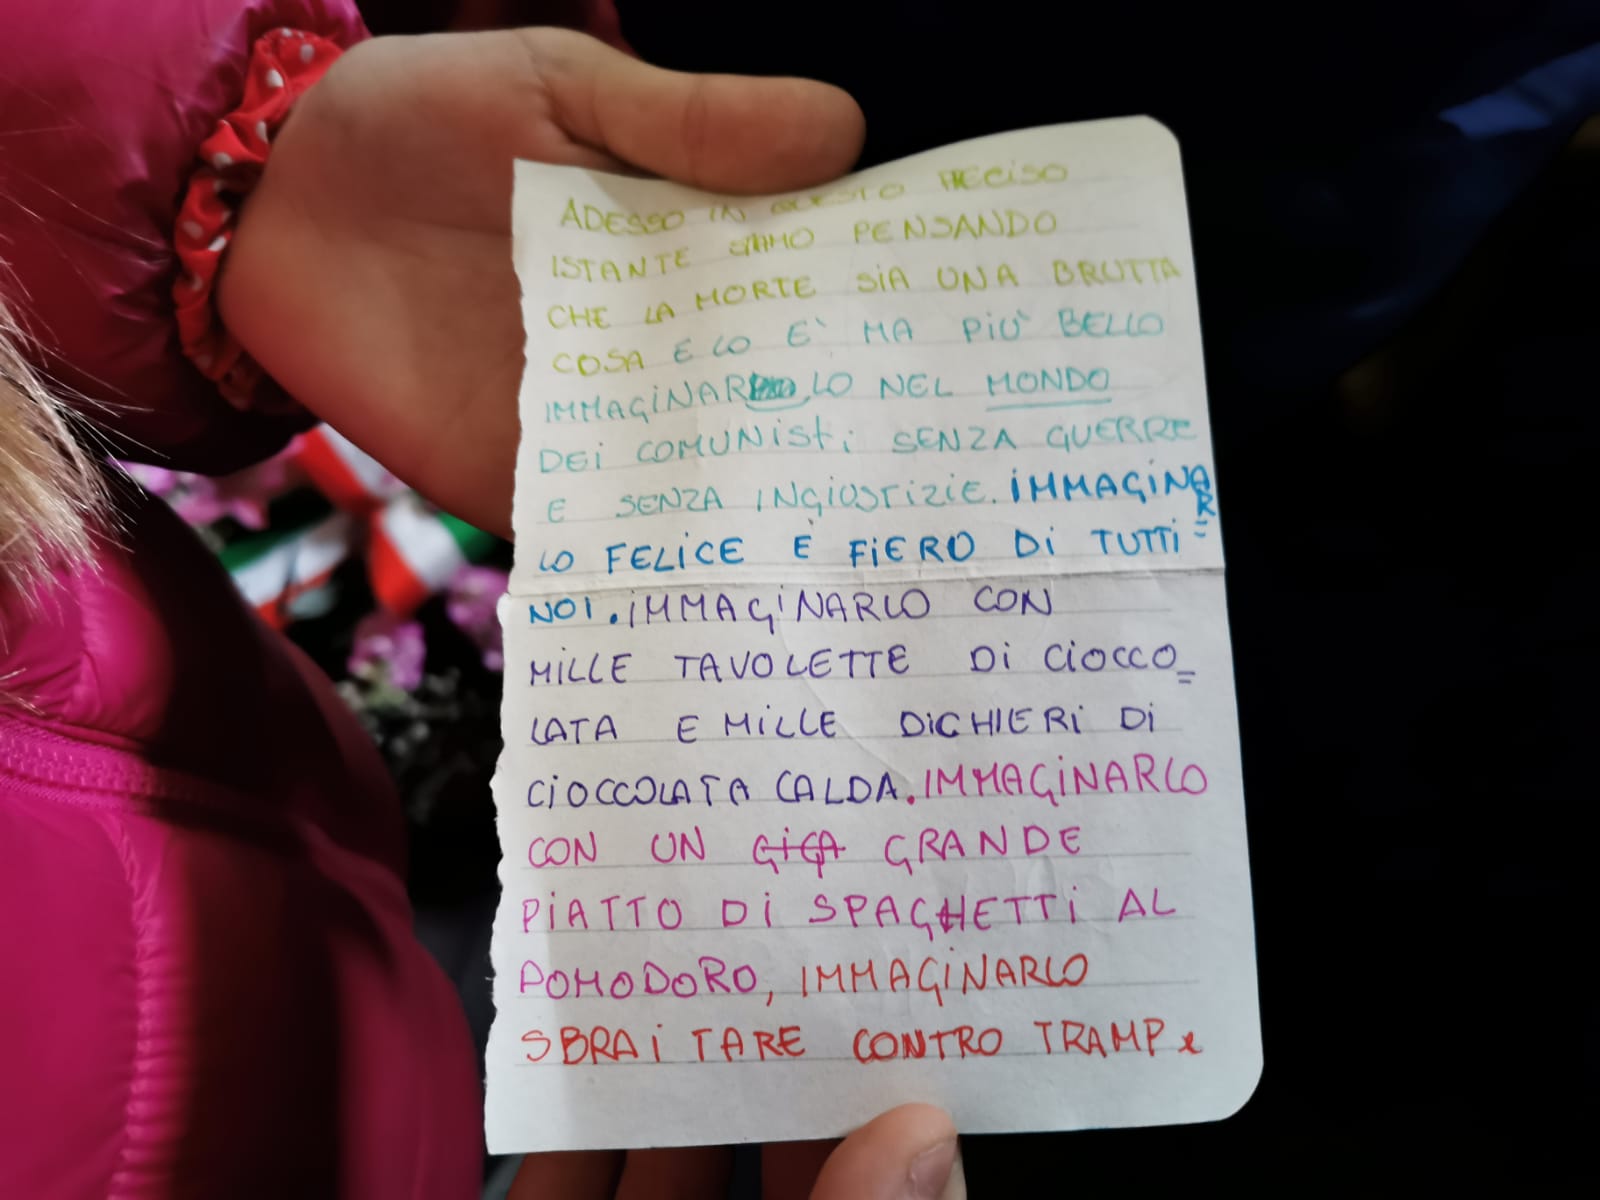 ADESSO IN QUESTO PRECISO
ISTANTE STIAMO PENSANDO
CHE LA MORTE SIA UNA BRUTTA
COSA E LO E' MA PIU' BELLO
IMMAGINAR LO NEL MONDO
DEI COMUNISTI SENZA GUERRE
E SENZA INGIUSTIZIE. IMMAGINAR
LO FELICE E FIERO DI TUTTI =
NOI. IMMAGINARLO CON
MILLE TAVOLETTE DI CIOCCO=
LATA E MILLE DICHIERI DI
CIOCCOLATA CALDA. IMMAGINARLO
CON UN GIGA GRANDE
PIATTO DI SPAGHETTI AL
POMODORO, IMMAGINARLO
SBRAITARE CONTRO TRAMP e